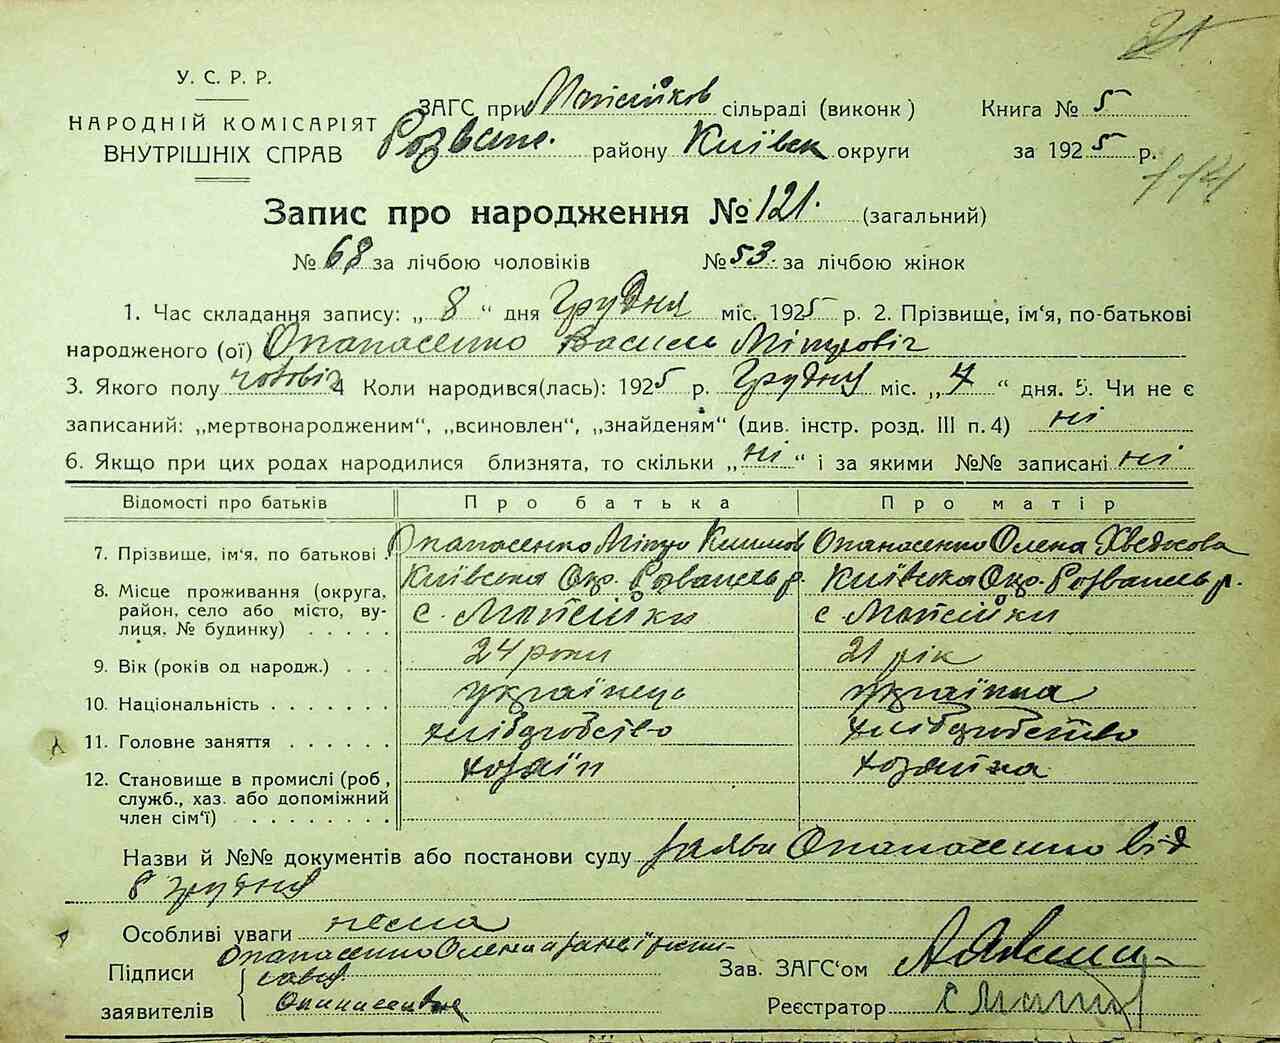 21
У. С. Р. Р.
НАРОДНІЙ КОМІСАРІЯТ
ВНУТРІШНІХ СПРАВ
ЗАГС при Мойсійков сільраді (виконк)
Розваж. району Київськ округи
Книга № 5
за 1925 р.
114
Запис про народження № 121. (загальний)
№ 68 за лічбою чоловіків № 53. за лічбою жінок
1. Час складання запису: „ 8 “ дня Грудня міс. 1925 р. 2. Прізвище, ім'я, по-батькові
народженого (ої) Опанасенко Василь Мітрович
3. Якого полу чоловіч 4 Коли народився(лась): 1925 р. Грудню міс. „ 7 “ дня. 5. Чи не є
записаний: „мертвонародженим“, „всиновлен“, „знайденям“ (див. інстр. розд. III п. 4) ні
6. Якщо при цих родах народилися близнята, то скільки „ ні “ і за якими №№ записані ні
Відомості про батьків Про батька Про матір
7. Прізвище, ім'я, по батькові Опанасенко Мітро Климов Опанасенко Олена Хведосова
8. Місце проживання (округа, район, село або місто, вулиця, № будинку) . . . . .
Київська Окр. р. Київська Окр. р.
с. Мойсійки с. Мойсійки
9. Вік (років од народж.) . . . 24 роки 21 рік
10. Національність . . . . . . . українець українка
11. Головне заняття . . . . . . хліборобство хліборобство
12. Становище в промислі (роб., служб., хаз. або допоміжний член сім'ї) . . . . . . . . . хозяїн хозяйка
Назви й №№ документів або постанови суду заява Опанасенко від
8 грудня
Особливі уваги нема
Підписи
заявителів
Опанасенко Олена
Зав. ЗАГС'ом
Реєстратор